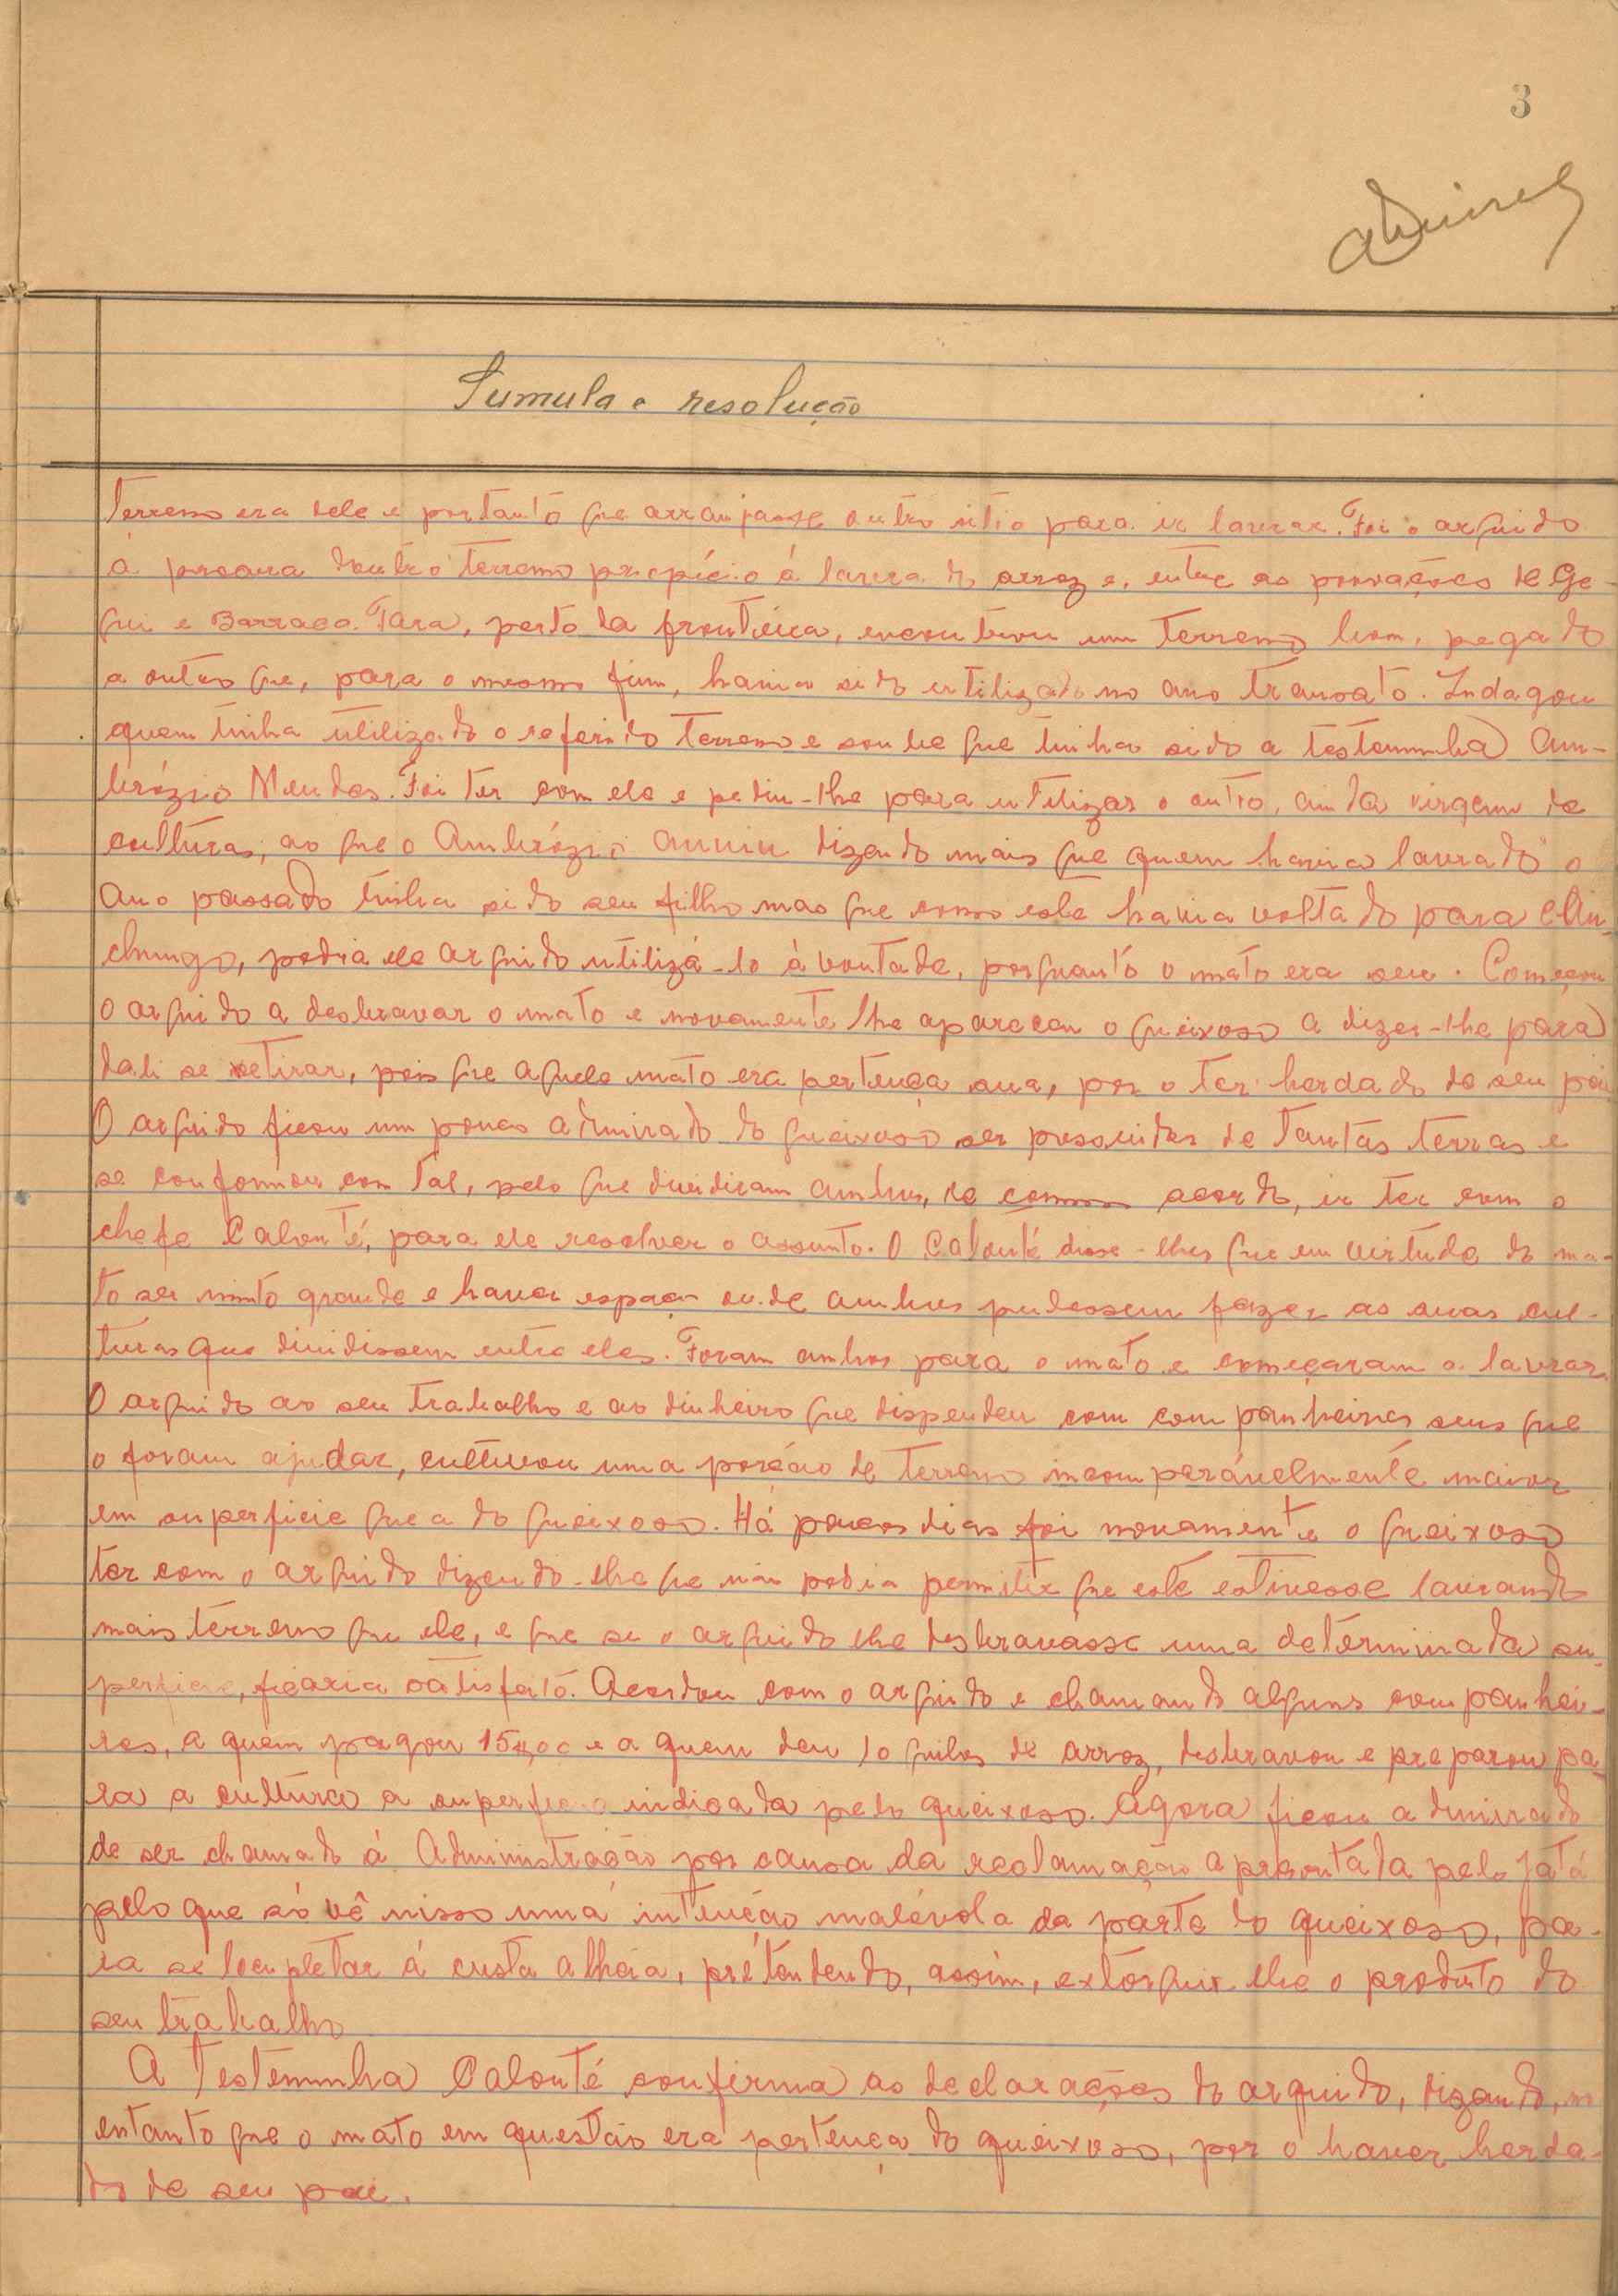 3
Sumula e resolução
terreno era dele e portanto que arranjasse outro sitio para ir lavrar. Foi o arguido
á procura doutro terreno propício á lavra do arroz e, entre as povoações de Ge-
qui e Barraca Tara, perto da fronteira, encontrou um terreno bom, pegado
a outro que, para o mesmo fim, havia sido utilizado no ano transato. Indagou
quem tinha utilizado o referido terreno e soube que tinha sido a testemunha Am-
brózio Mendes. Foi ter com ele e pediu-lhe para utilizar o outro, ainda virgem de
culturas, ao que o Ambrózio anuiu dizendo mais que quem havia lavrado o
ano passado tinha sido seu filho mas que como este havia voltado para
chungo, podia ele arguido utilizá-lo à vontade, porquanto o mato era seu. Começou
o arguido a desbravar o mato e novamente lhe apareceu o queixoso a dizer-lhe para
dali se retirar, pois que aquele mato era pertença sua, por o ter herdado de seu pai
O arguido ficou um pouco admirado do queixoso ser possuidor de tantas terras e
se conformou com tal, pelo que decidiram ambos, de comum acordo, ir ter com o
chefe Calonté, para ele resolver o assunto. O Calonté disse-lhes que em virtude do ma-
to ser muito grande e haver espaço onde ambos pudessem fazer as suas cul-
turas que dividissem entre eles. Foram ambos para o mato e começaram a lavrar.
O arguido ao seu trabalho e ao dinheiro que dispendeu com companheiros seus que
o foram ajudar, cultivou uma porção de terreno incomparávelmente maior
em superficie que a do queixoso. Há poucos dias foi novamente o queixoso
ter com o arguido dizendo-lhe que não podia permitir que este estivesse lavrando
mais terreno que ele, e que se o arguido lhe desbravasse uma determinada su-
perficie, ficaria satisfeito. Acordou com o arguido e chamando alguns companhei-
ros, a quem pagou 15$00 e a quem deu 10 quilos de arroz, desbravou e preparou pa-
ra a cultura a superficie indicada pelo queixoso. Agora ficou admirado
de ser chamado á Administração por causa da reclamação apresentada pelo Jatá
pelo que só vê nisso uma intenção malévola da parte do queixoso, pa-
ra se locupletar á custa alheia, pretendendo, assim, extorquir-lhe o produto do
seu trabalho
A testemunha Calonté confirma as declarações do arguido, dizendo, no
entanto que o mato em questão era pertença do queixoso, por o haver herda-
do de seu pai.